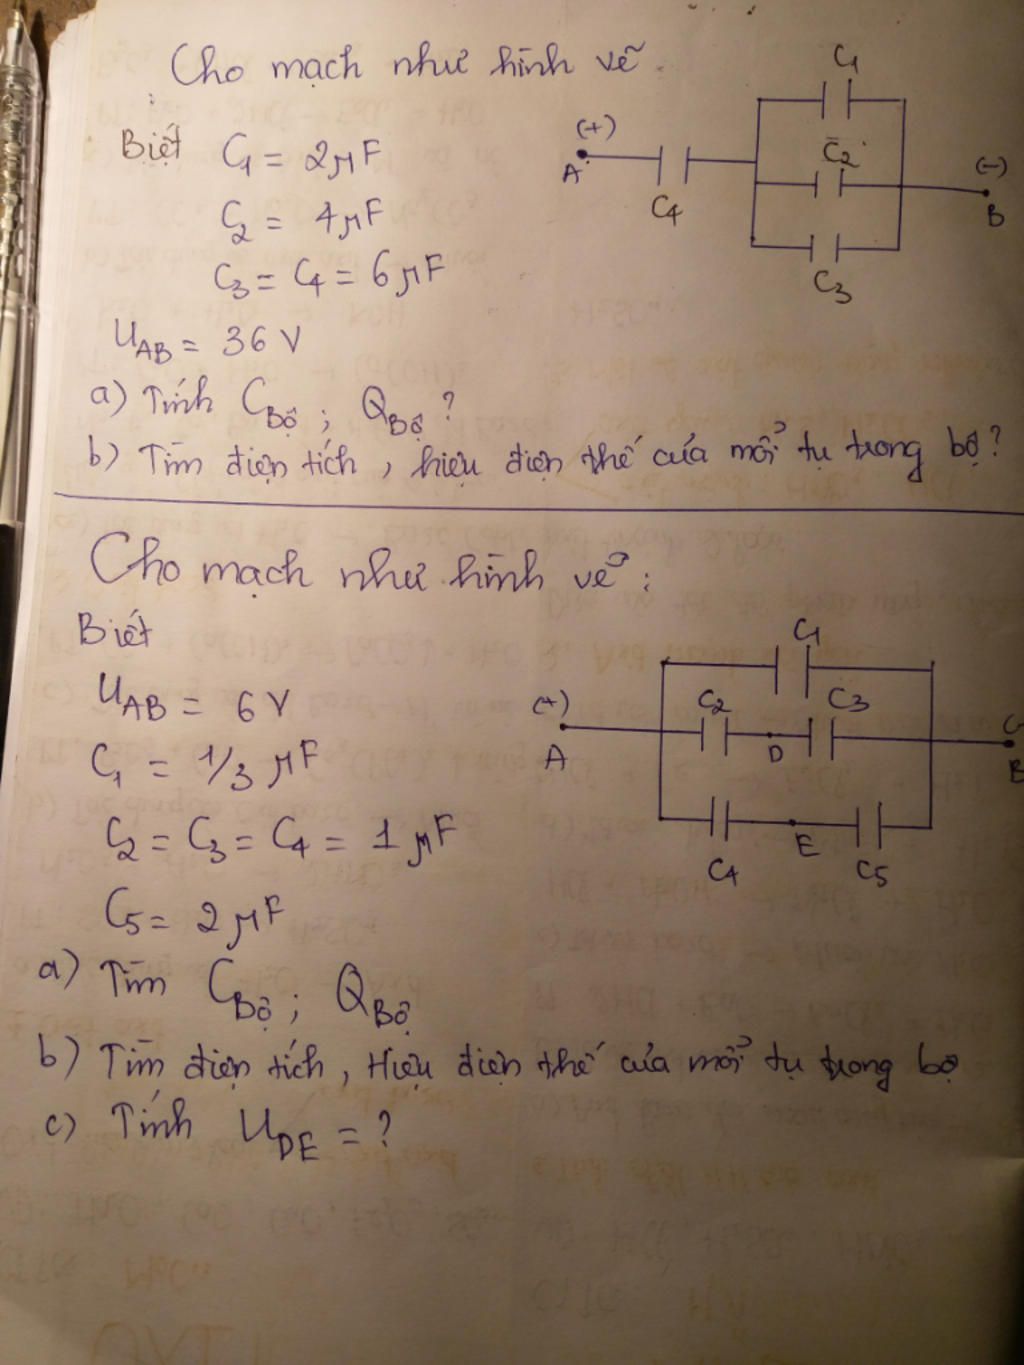 Cho mạch như hình vẽ.
Biết C1 = 2μF
C2 = 4μF
C3 = C4 = 6μF
UAB = 36 V
a) Tính CBộ ; QBộ ?
b) Tìm điện tích , hiệu điện thế của mỗi tụ trong bộ?
(+)
A
C4
C1
C2
C3
(-)
B
Cho mạch như hình vẽ :
Biết
UAB = 6 V
C1 = 1/3 μF
C2 = C3 = C4 = 1 μF
C5 = 2 μF
(+)
A
C1
C2
D
C3
C4
E
C5
a) Tìm CBộ ; QBộ
b) Tìm điện tích , Hiệu điện thế của mỗi tụ trong bộ
c) Tính UDE = ?